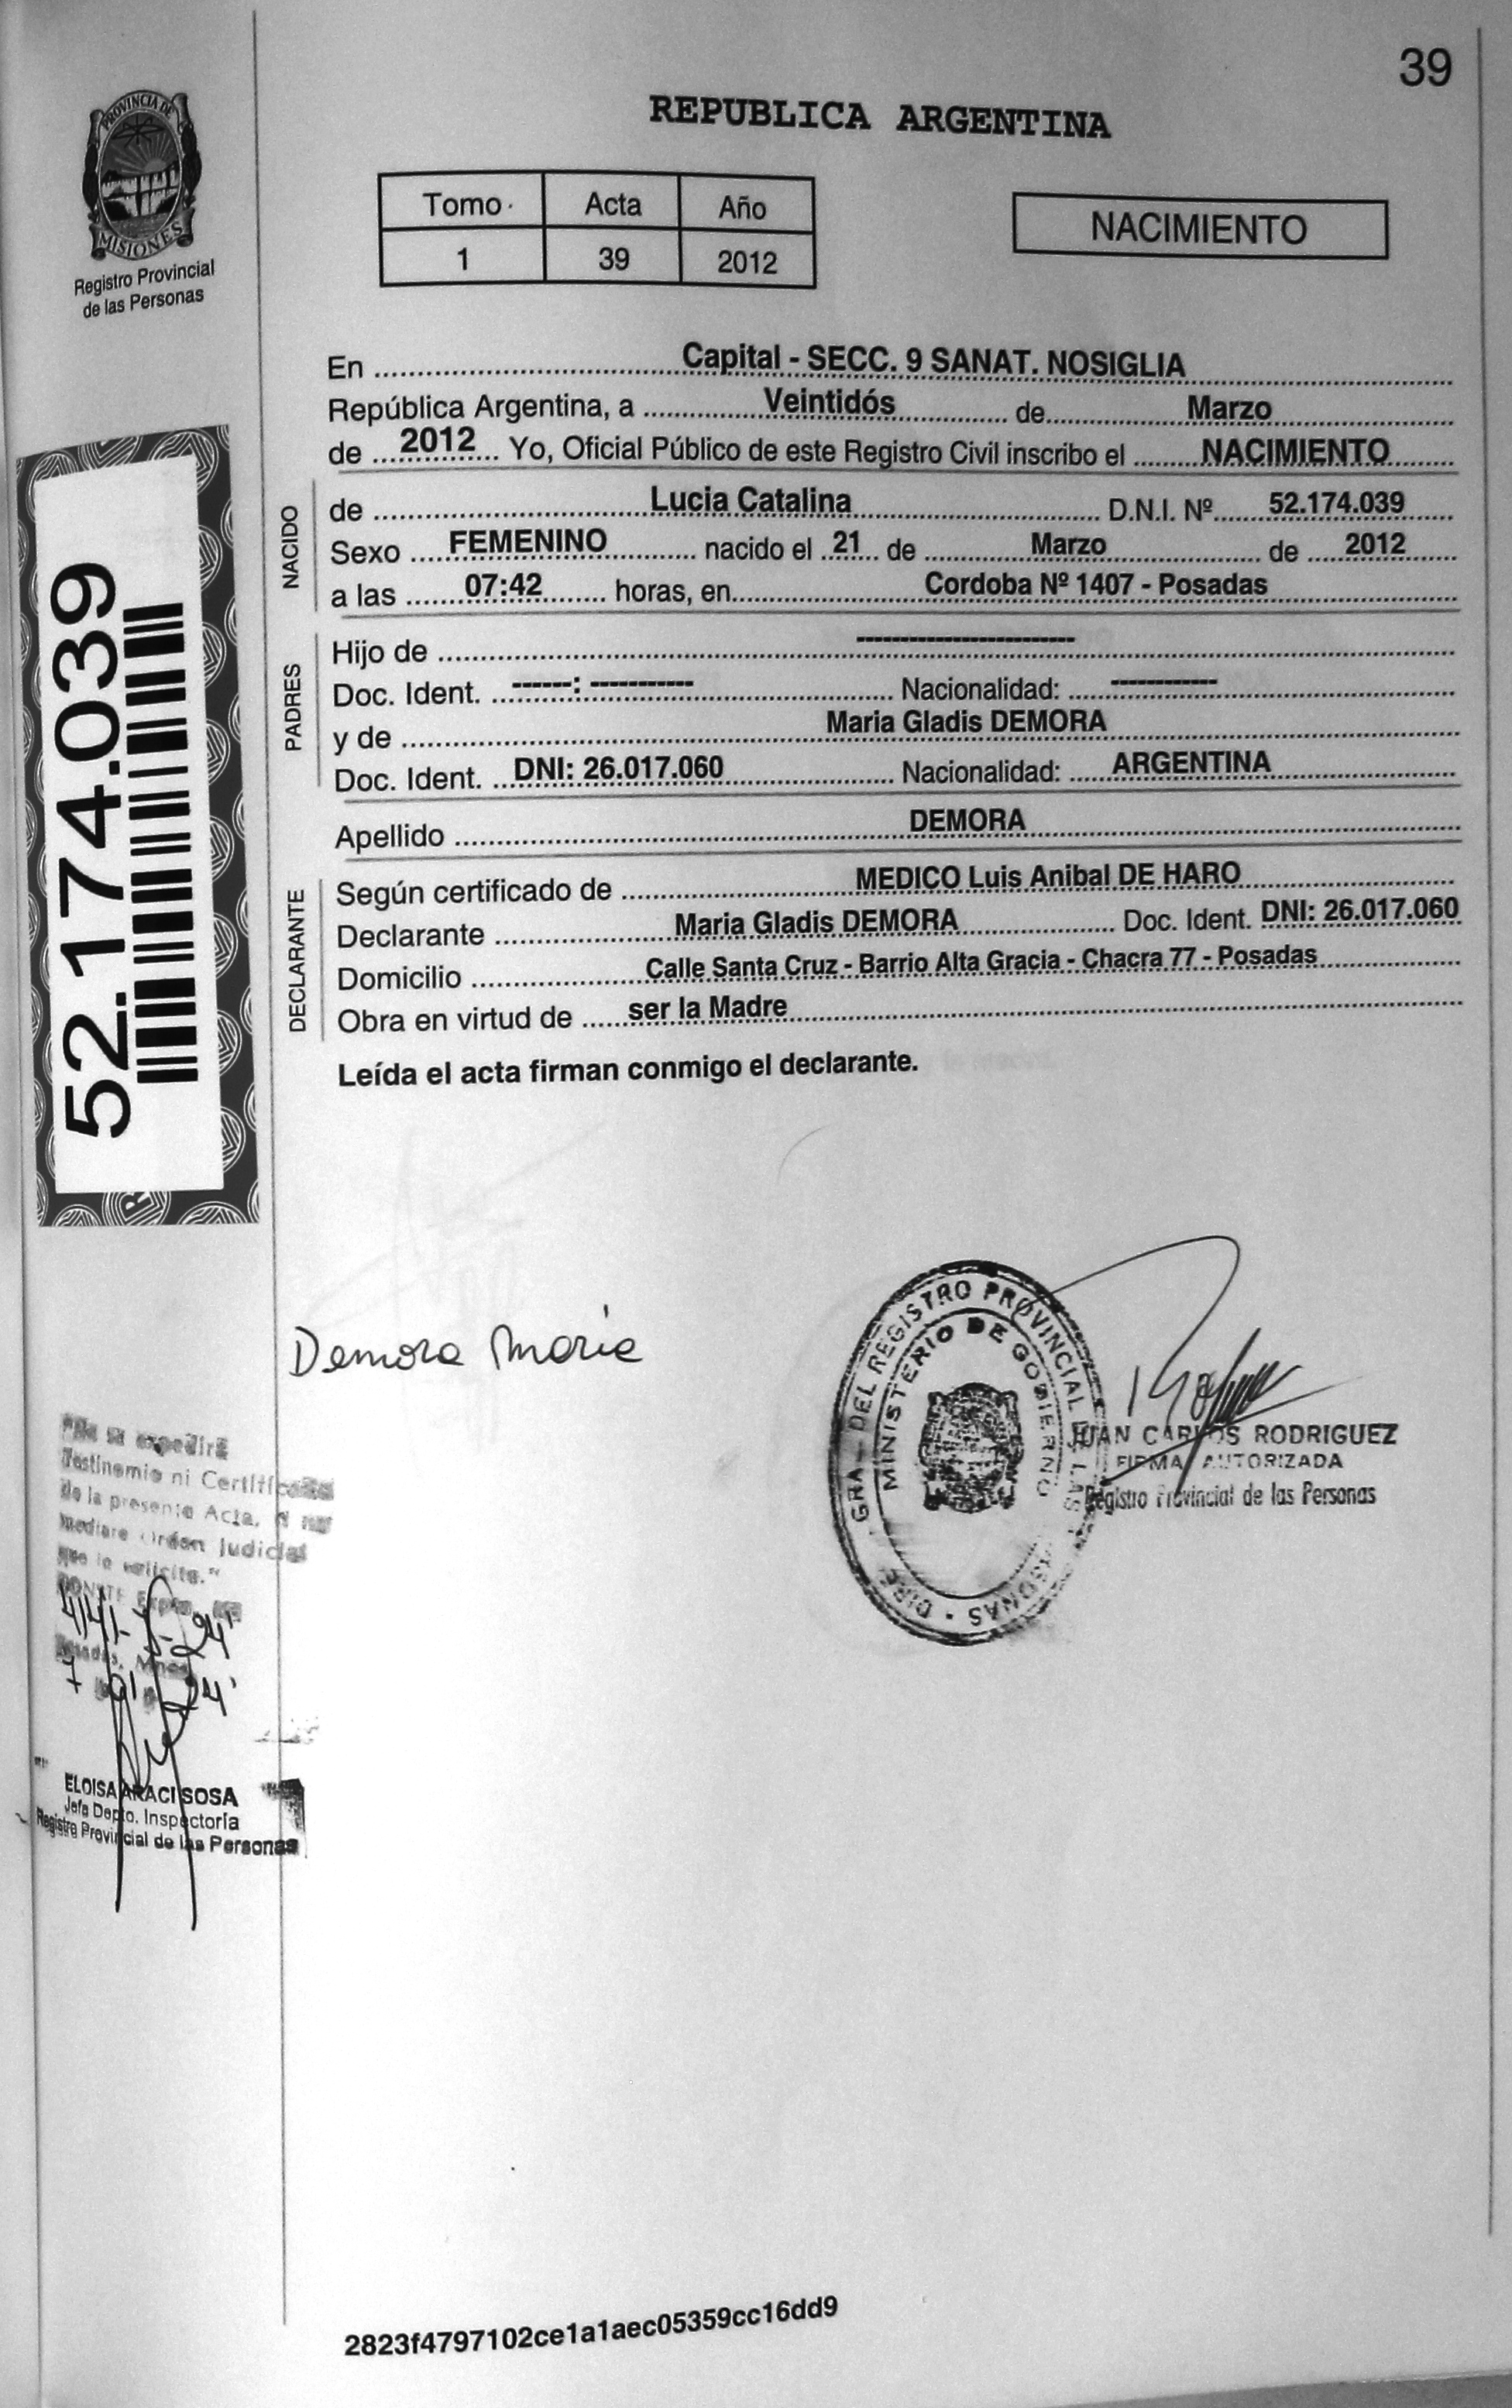 39
PROVINCIA DE
MISIONES
Registro Provincial
de las Personas
REPUBLICA ARGENTINA
Tomo Acta Año
1 39 2012
NACIMIENTO
En Capital - SECC. 9 SANAT. NOSIGLIA
República Argentina, a Veintidós de Marzo
de 2012 Yo, Oficial Público de este Registro Civil inscribo el NACIMIENTO
NACIDO
de Lucia Catalina D.N.I. Nº 52.174.039
Sexo FEMENINO nacido el 21 de Marzo de 2012
a las 07:42 horas, en Cordoba Nº 1407 - Posadas
PADRES
Hijo de ------------------------
Doc. Ident. ------: ----------- Nacionalidad: ------------
y de Maria Gladis DEMORA
Doc. Ident. DNI: 26.017.060 Nacionalidad: ARGENTINA
Apellido DEMORA
DECLARANTE
Según certificado de MEDICO Luis Anibal DE HARO
Declarante Maria Gladis DEMORA Doc. Ident. DNI: 26.017.060
Domicilio Calle Santa Cruz - Barrio Alta Gracia - Chacra 77 - Posadas
Obra en virtud de ser la Madre
Leída el acta firman conmigo el declarante.
52.174.039
Demora Maria
DEL REGISTRO PROVINCIAL DE LAS
MINISTERIO DE GOBIERNO
JUAN CARLOS RODRIGUEZ
FIRMA AUTORIZADA
Registro Provincial de las Personas
"No se expedirá
Testimonio ni Certificado
de la presente Acta, si no
mediare Orden Judicial
que lo solicite."
ELOISA ARACI SOSA
Jefa Depto. Inspectoría
Registro Provincial de las Personas
2823f4797102ce1a1aec05359cc16dd9